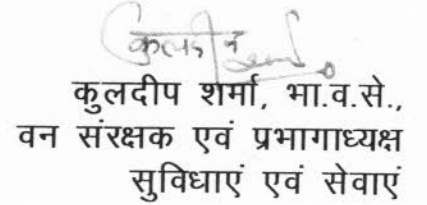 कुलदीप शर्मा, भा.व.से.,
वन संरक्षक एवं प्रभागाध्यक्ष
सुविधाएं एवं सेवाएं